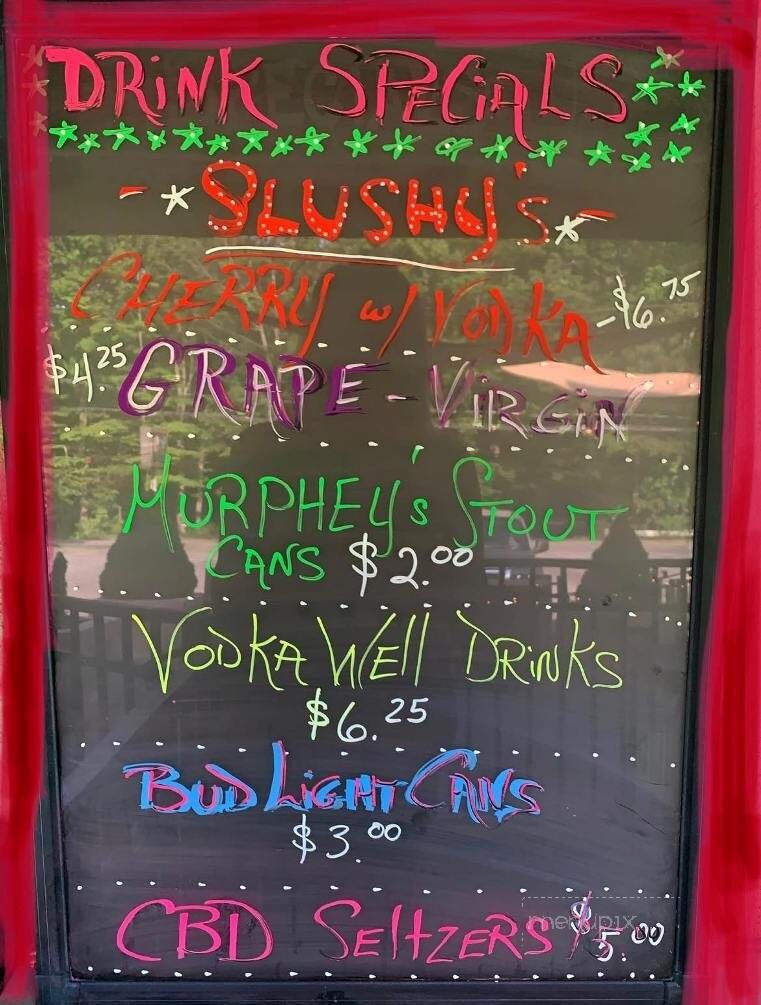 DRINK SPECIALS
- SLUSHY's -
CHERRY w/ VODKA - $6.75
$4.25 GRAPE - VIRGIN
MURPHEY's STOUT
CANS $2.00
VODKA WEll DRINKS
$6.25
BUD LIGHT CANS
$3.00
CBD SEltzERS $5.00
menupix